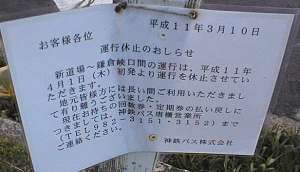 平成11年3月10日
お客様各位
運行休止のおしらせ
新道場～鎌倉峡口間の運行は、平成11年
4月1日(木)初発より運行を休止させてい
ただきます。
地元皆様方には長い間ご利用いただきまし
て有難うございました。
現在お持ちの回数券・定期券の払い戻しに
つきましては、神鉄バス唐櫃営業所
(TEL982-3151・3152)まで
ご連絡ください。
神鉄バス株式会社